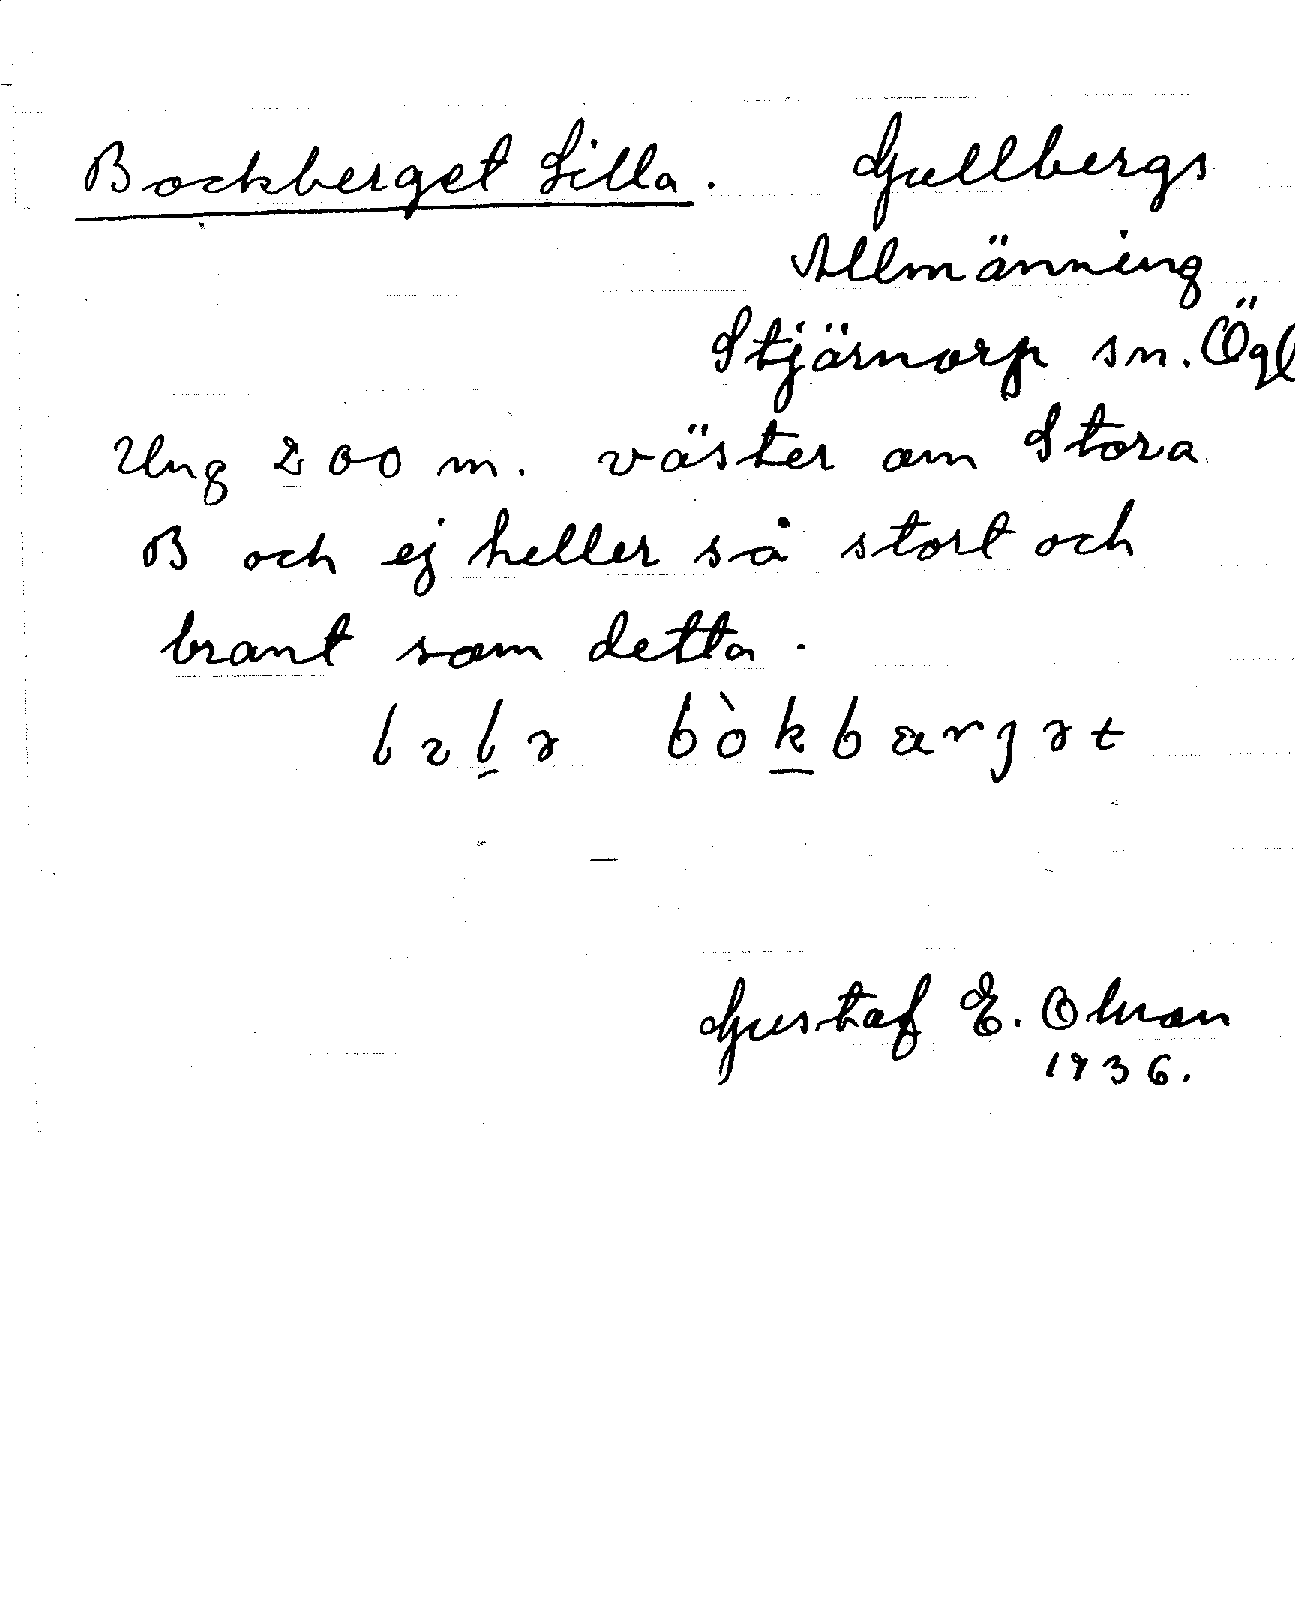 Bockberget Lilla. Gullbergs
Allmänning
Stjärnorp sn. Ögl
Ung 200 m. väster om Stora
B och ej heller så stort och
brant som detta.
bòkbærjət
Gustaf E. Olsson
1936.